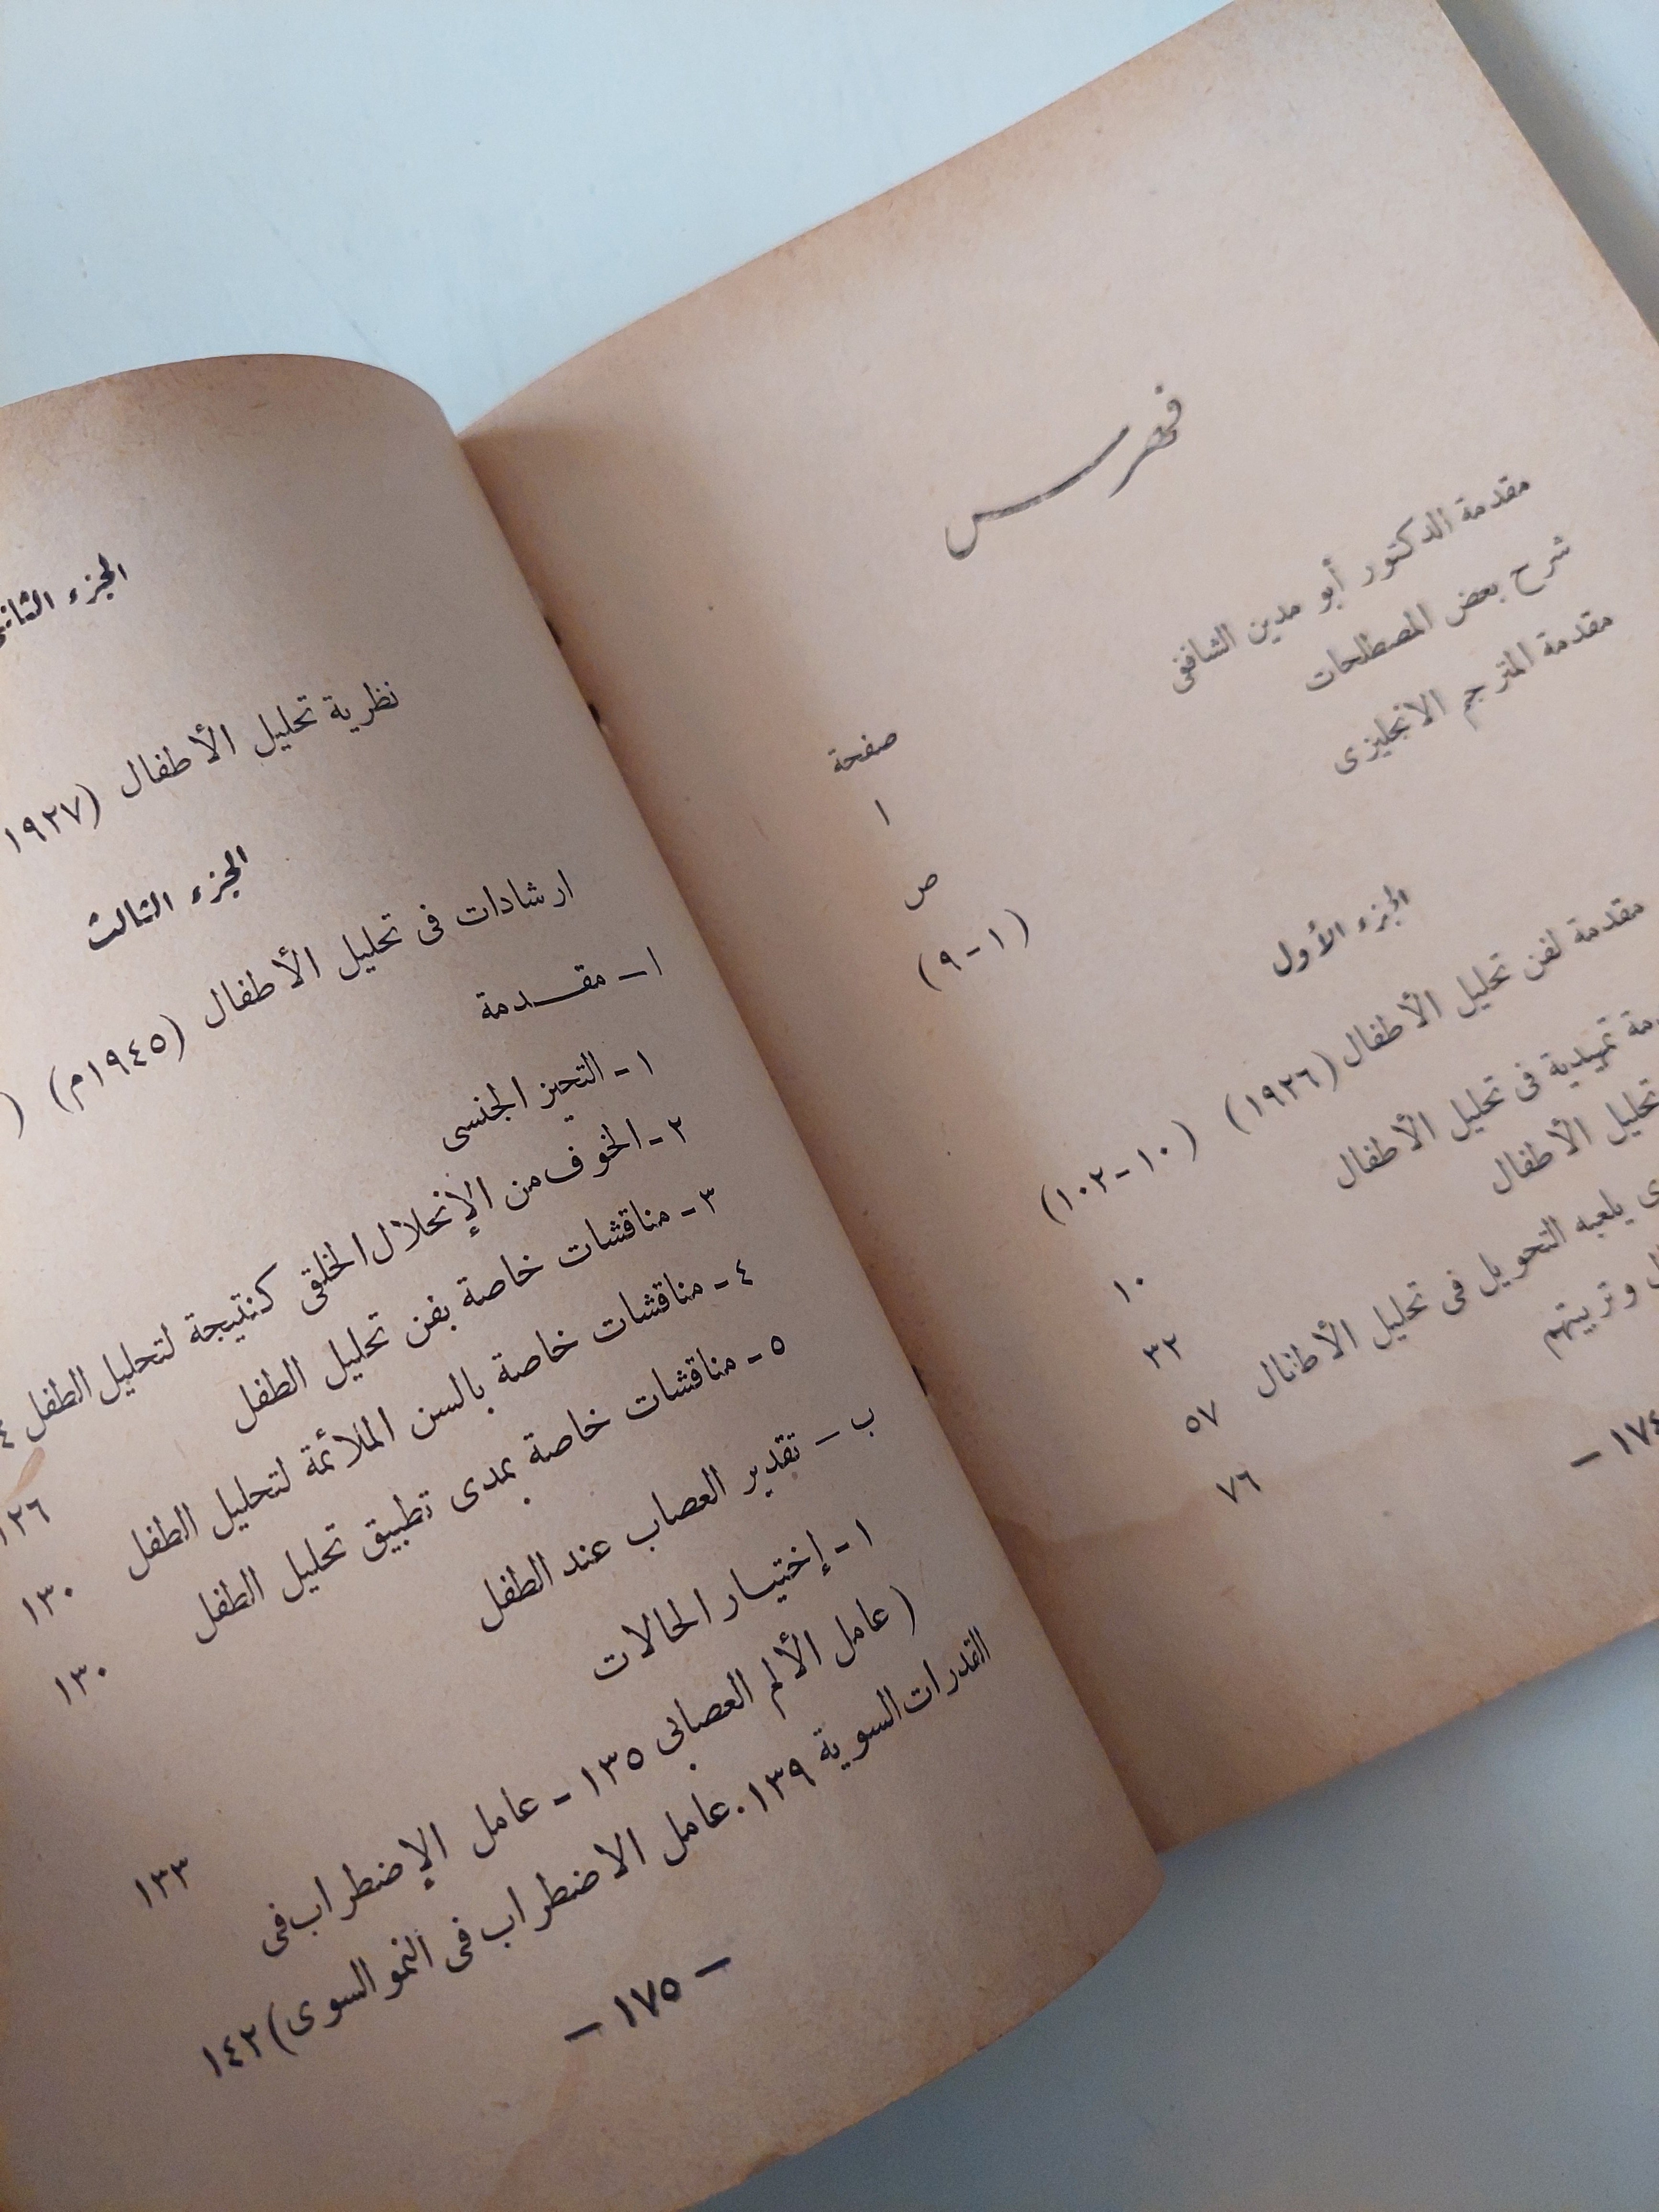 فهرس
صفحة
مقدمة الدكتور أبو مدين الشافعى ا
شرح بعض المصطلحات ص
مقدمة المترجم الانجليزى (١-٩)
الجزء الأول
مقدمة لفن تحليل الأطفال (١٩٢٦) (١٠-١٠٢)
تمهيدية فى تحليل الأطفال ١٠
تحليل الأطفال ٣٢
يلعبه التحويل فى تحليل الأطفال ٥٧
وتربيتهم ٧٦
— ١٧٤
الجزء الثانى
نظرية تحليل الأطفال (١٩٢٧
الجزء الثالث
ارشادات فى تحليل الأطفال (١٩٤٥م) (
ا — مقدمة
١ - التحيز الجنسى
٢ - الخوف من الإنحلال الخلقى كنتيجة لتحليل الطفل
٣ - مناقشات خاصة بفن تحليل الطفل ١٢٦
٤ - مناقشات خاصة بالسن الملائمة لتحليل الطفل ١٣٠
٥ - مناقشات خاصة بمدى تطبيق تحليل الطفل ١٣٠
ب — تقدير العصاب عند الطفل
١ - إختيار الحالات ١٣٣
(عامل الألم العصابى ١٣٥ - عامل الإضطراب فى
القدرات السوية ١٣٩. عامل الاضطراب فى النمو السوى) ١٤٢
— ١٧٥ —